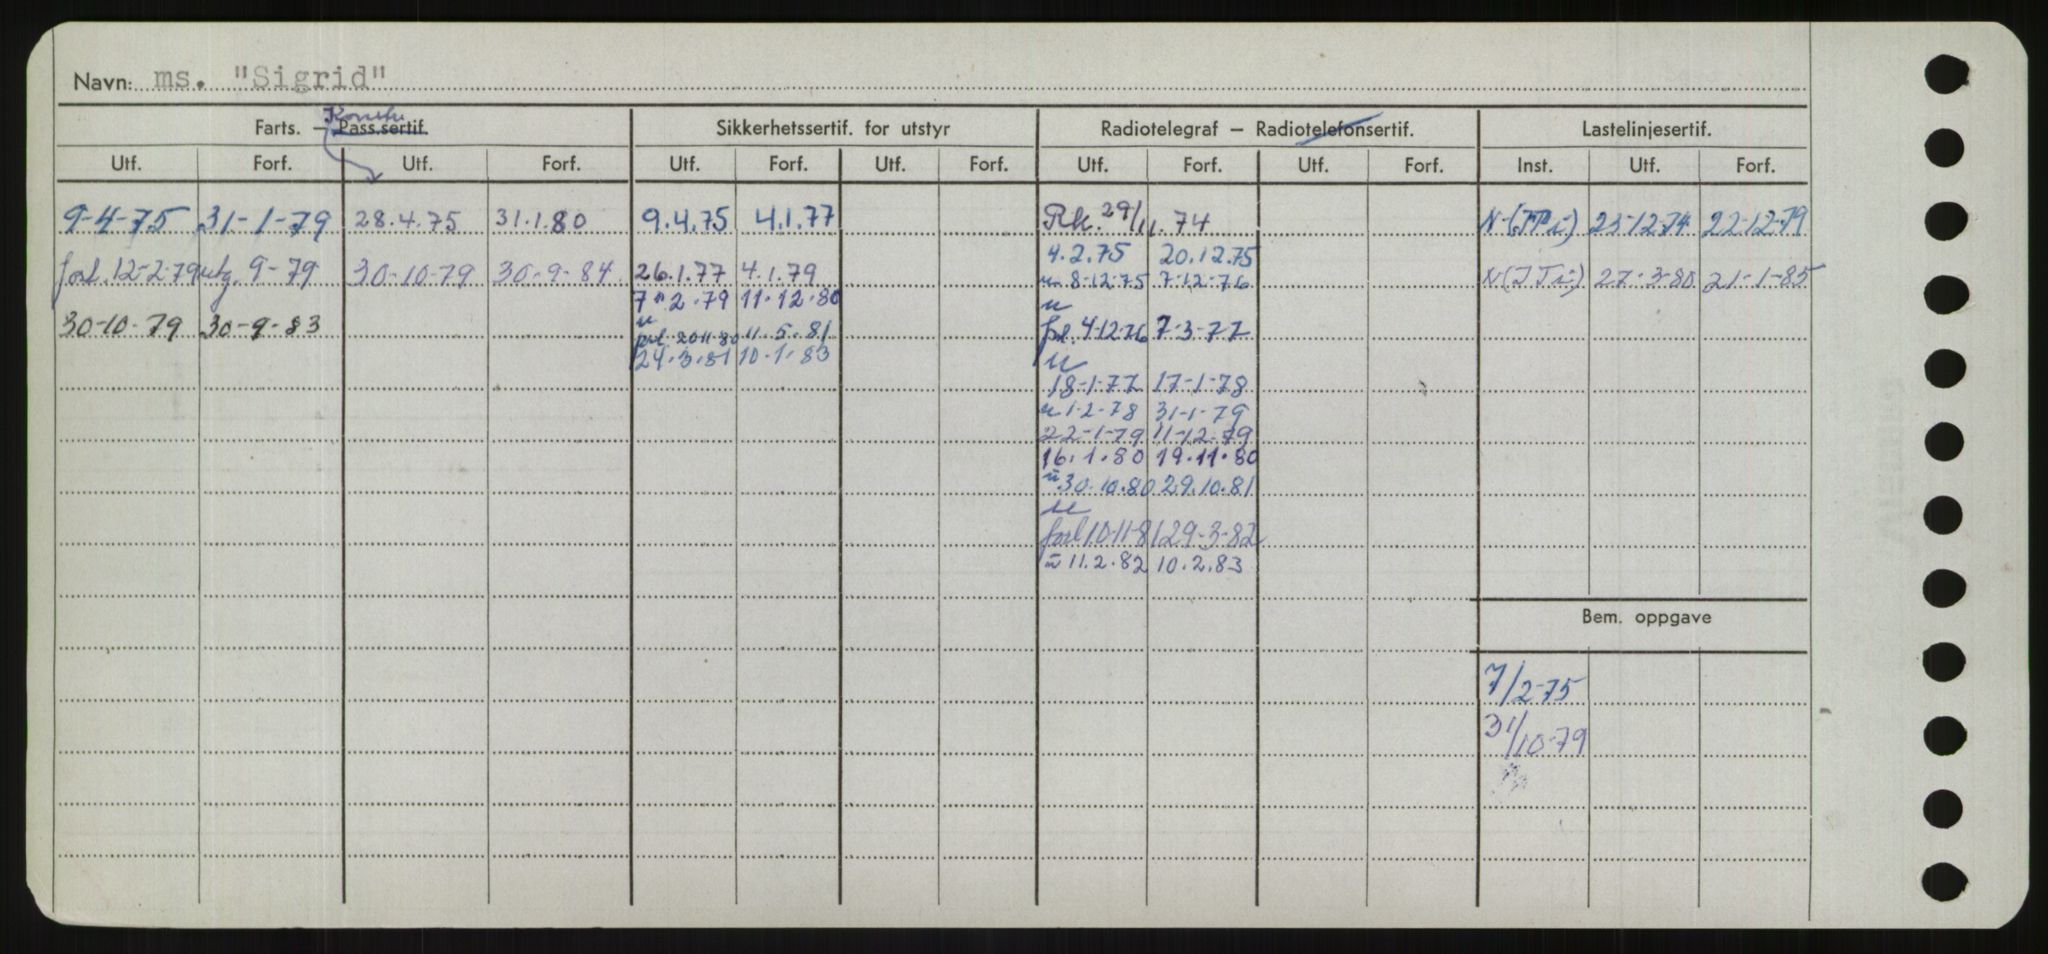 Navn: ms. "Sigrid"
Farts. – Konstr. Pass.sertif. Sikkerhetssertif. for utstyr Radiotelegraf – Radiotelefonsertif. Lastelinjesertif.
Utf. Forf. Utf. Forf. Utf. Forf. Utf. Forf. Utf. Forf. Utf. Forf. Inst. Utf. Forf.
9-4-75 31-1-79 28.4.75 31.1.80 9.4.75 4.1.77 Rk. 29/11.74 23-12-74 22-12-79
4.2.75 20.12.75
forl. 12-2-79 utg. 9-79 30-10-79 30-9-84 26.1.77 4.1.79 u 8-12-75 7-12-76 27-3-80 21-1-85
7-2-79 11.12.80
u u
30-10-79 30-9-83 forl. 20-11-80 11.5.81 forl. 4-12-76 7-3-77
24.3.81 10.1.83 u
18-1-77 17-1-78
u 1-2-78 31-1-79
22-1-79 11-12-79
16.1.80 19.11.80
u 30.10.80 29.10.81
u
forl 10-11-81 29-3-82
u 11.2.82 10.2.83
Bem. oppgave
7/2-75
31/10-79